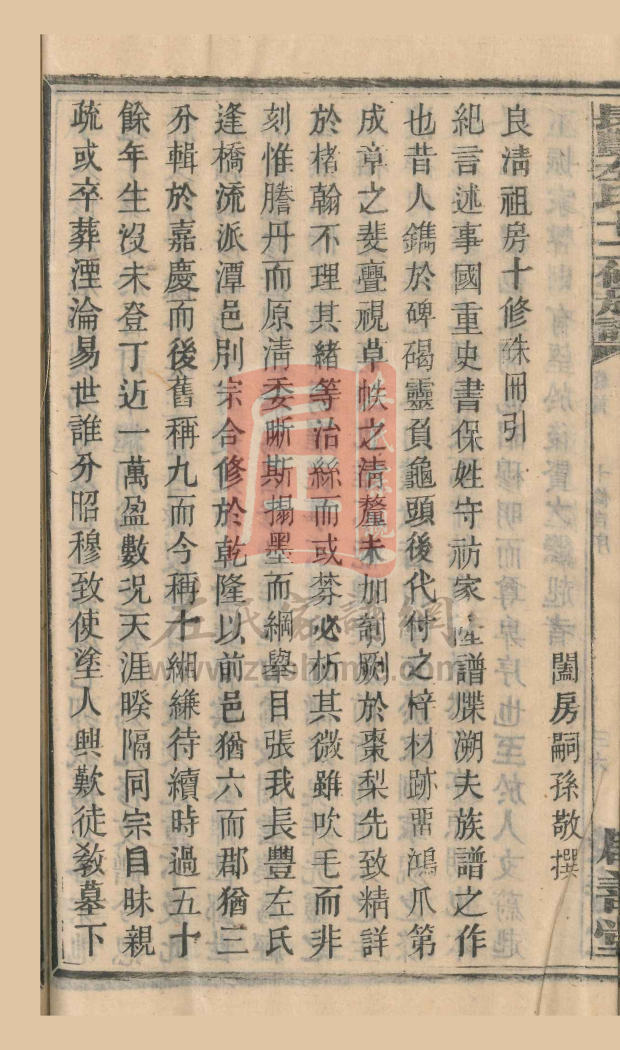 長豐左氏十二修族譜
闔房嗣孫敬撰
良淸祖房十修硃冊引
紀言述事國重史書保姓守祊家 譜牒溯夫族譜之作
也昔人鐫於碑碣靈負龜頭後代付之梓材跡畱鴻爪第
成章之斐亹視草帙之淸釐未加剞劂於棗梨先致精詳
於楮翰不理其緒等治絲而或棼必析其微雖吹毛而非
刻惟謄丹而原淸委晰斯搨墨而綱舉目張我長豐左氏
逢橋流派潭邑別宗合修於乾隆以前邑猶六而郡猶三
分輯於嘉慶而後舊稱九而今稱十緗縑待續時過五十
餘年生沒未登丁近一萬盈數況天涯暌隔同宗目昧親
疏或卒葬湮淪易世誰分昭穆致使塗人興歎徒敎墓下
左氏家譜網
www.zuoshomg.com